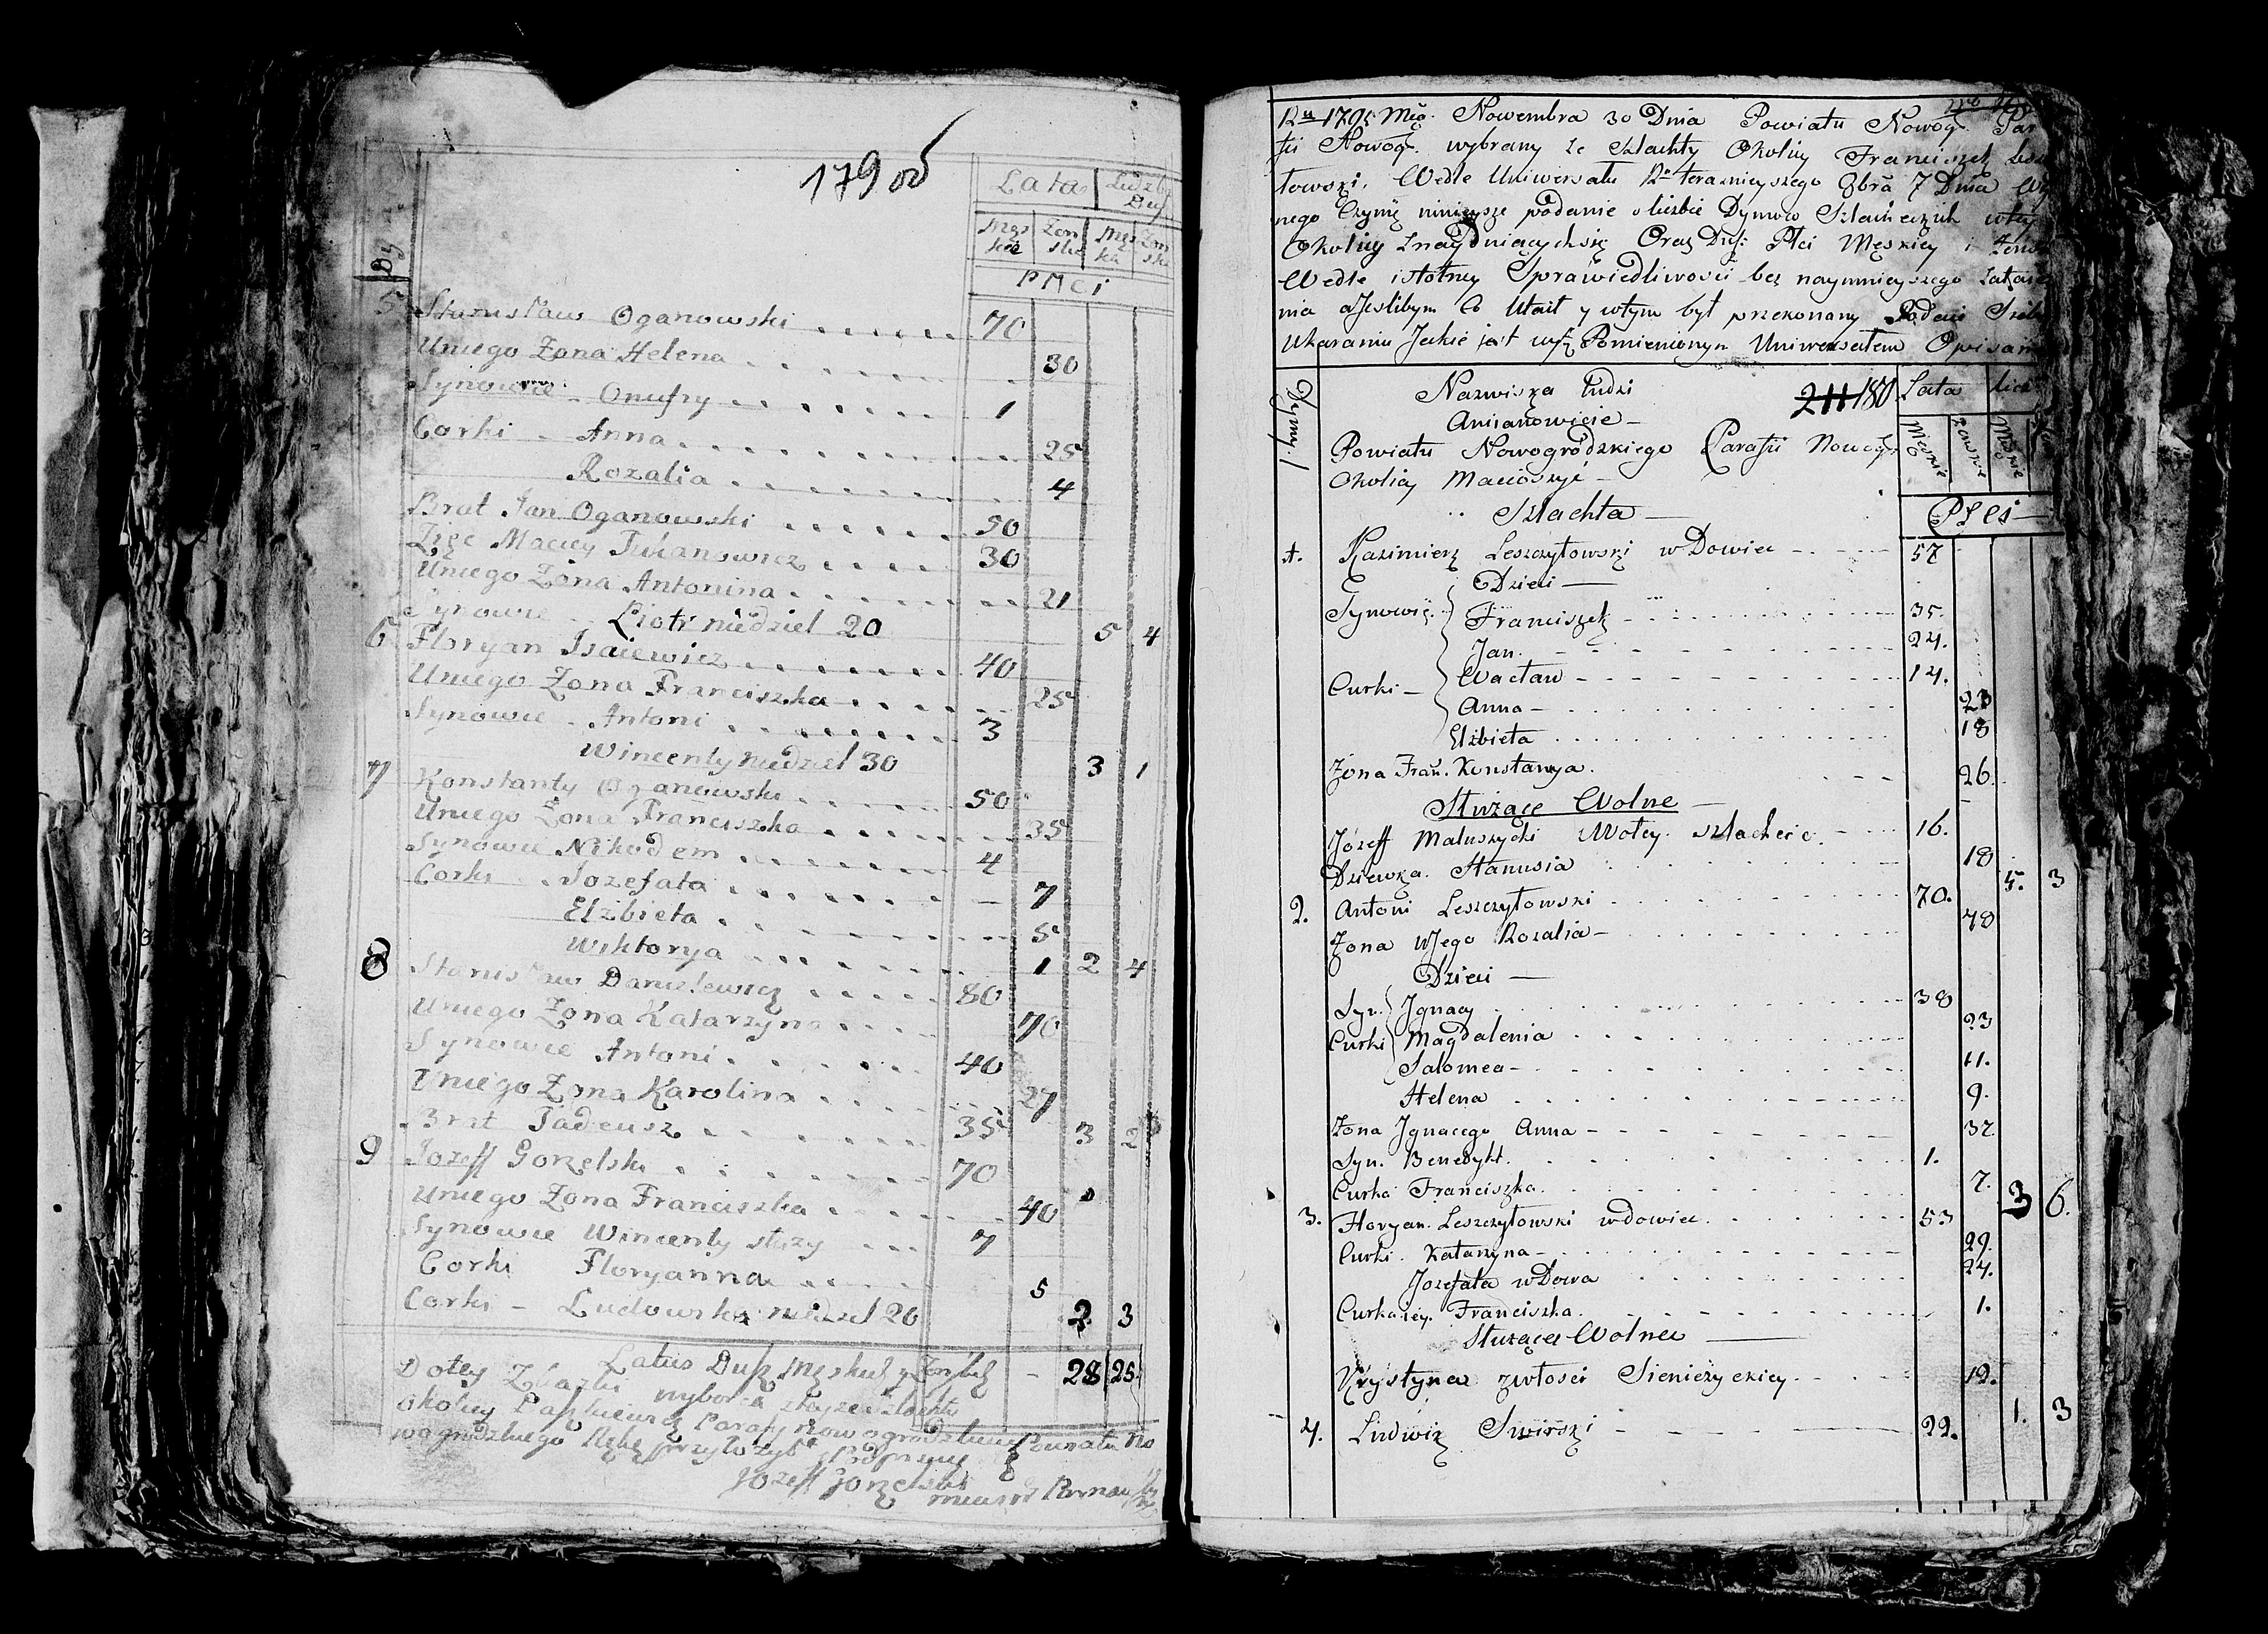 179 об
Lata Liczba Dusz
Męs kie Żeń skie Męs kie Żeń skie
Płci
5 Stanisław Oganowski 70
Uniego Zona Helena 30
Synowie - Onufry 1
Corki - Anna 25
Rozalia 4
Brat Jan Oganowski 50
Zięc Maciey Juhanowicz 30
Uniego Zona Antonina 21
Synowie - Piotr niedziel 20 5 4
6 Floryan Isaiewicz 40
Uniego Zona Franciszka 25
Synowie - Antoni 3
Wincenty niedziel 30 3 1
7 Konstanty Oganowski 50
Uniego Zona Franciszka 35
Synowie Nikodem 4
Corki Jozefata 7
Elzbieta 5
Wiktorya 1 2 4
8 Stanisław Danilewicz 80
Uniego Zona Katarzyna 70
Synowie Antoni 40
Uniego Zona Karolina 27
Brat Tadeusz 35 3 2
9 Jozeff Gorzelski 70
Uniego Zona Franciszka 40
Synowie Wincenty słuzy 7
Corki Floryanna 5
Corki - Ludowika niedziel 20 2 3
Latus Dusz Męskich y Zeńskich - 28 25
Do tey wyborca
okolicy Parafij Nowogrodzkiey Powiatu No
wogrodzkiego Rękę
Jozeff Gorzelski
Ru 1795 Mca. Nowembra 30 Dnia Powiatu Nowog. Par
fii Nowog. wybrany ze Szlachty Okolicy Franciszek Lesz
towski. Wedle Uniwersału Ru teraznieyszego 8bra 7 Dnia
nego Czynię ninieysze podanie o liczbie Dymow Szlacheckich wtey
Okolicy Znayduiących się Oraz Dusz Płci Męskiey i Zensk
Wedle istotney Sprawiedliwości bez naymnieyszego zataie
nia a Jeslibym Co Utaił y wtym był przekonany Podaie Siebie
Ukaraniu Jakie jest wysz Pomienionym Uniwersałem Opisane
Dymy Nazwiska Ludzi 211 180 Lata licz
Amianowicie -
Powiatu Nowogrodzkiego Parafii Nowog. Męskie Zenskie Męskie
Okolicy Macioszyc -
Szlachta - Płci -
1. Kazimierz Leszczyłowski wDowiec 57
Dzieci -
Synowie Franciszek 35.
Jan 24.
Wacław 14.
Curki - Anna 23
Elzbieta 18
Zona Fran. Konstancya 26.
Słuzące Wolne -
Józeff Maluszycki Wolny Szlachcic 16.
Dziewka. Hanusia 18 5. 3
2. Antoni Leszczyłowski 70.
Zona wJego Rozalia - 48
Dzieci -
Syn. Jgnacy 38
Curki Magdalenia 23
Salomea - 11.
Helena 9.
Zona Jgnacego Anna 32
Syn. Benedykt 1.
Curka Franciszka 7. 3 6.
3. Floryan Leszczyłowski wdowiec 53
Curki. Katarzyna - 29.
Jozefata wDowa 24.
Curka iey. Franciszka 1.
Słuzącea Wolnea
Krystyna zwłosci Sieniezyckiey 12. 1. 3
4. Ludwik Swirski 22.